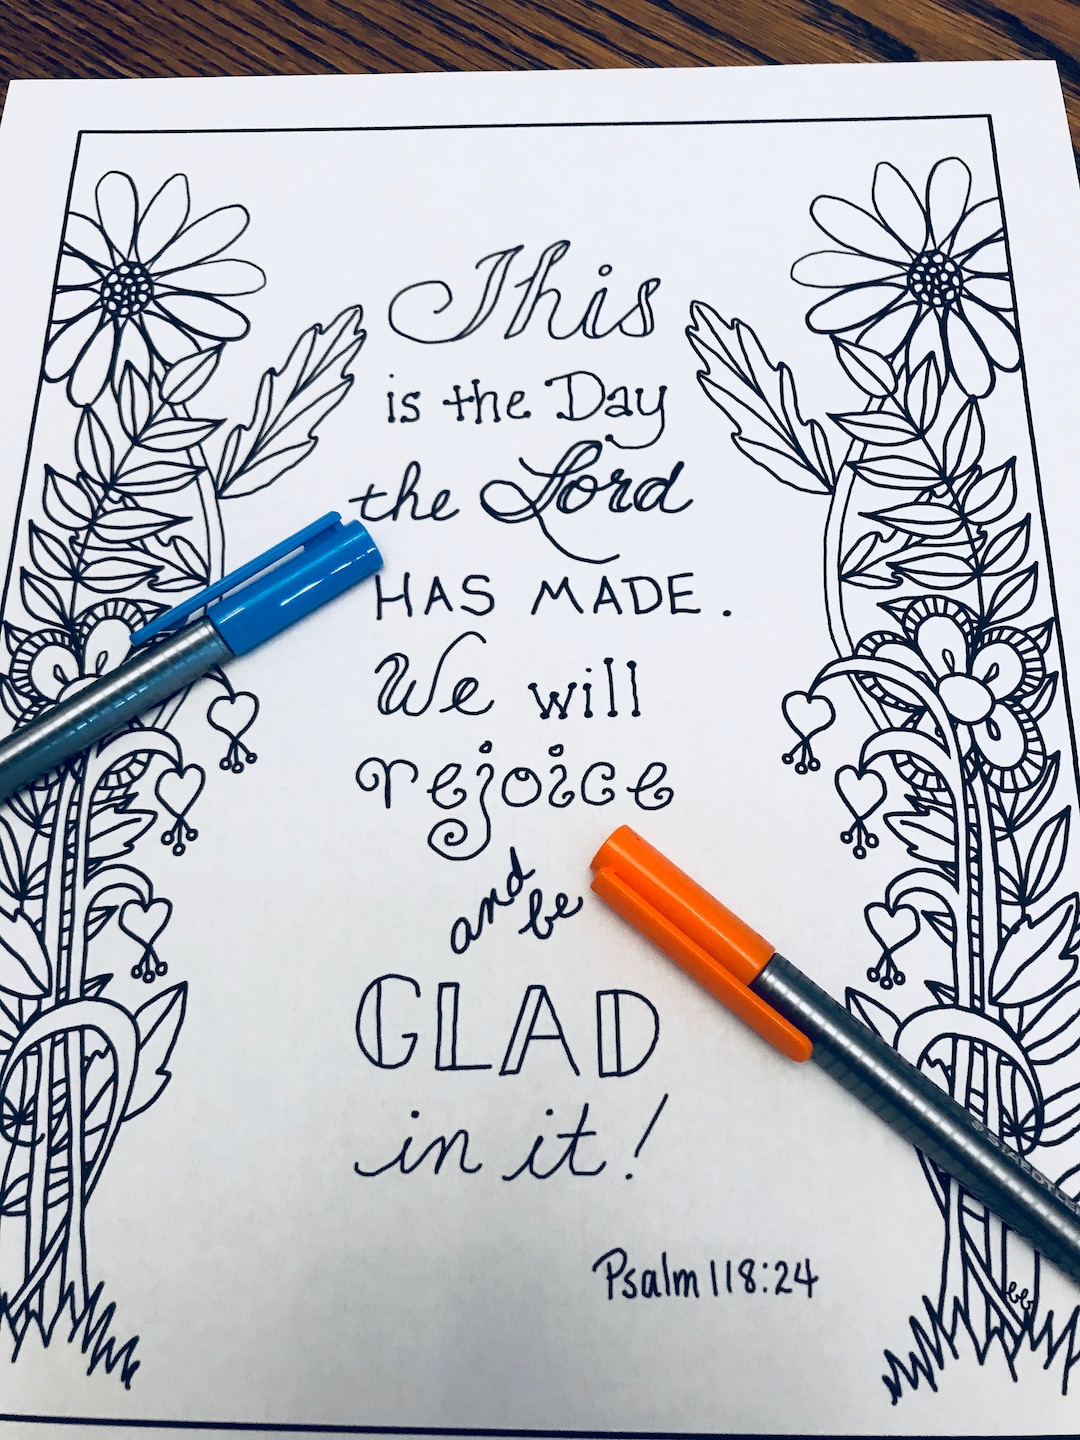 This
is the Day
the Lord
HAS MADE.
We will
rejoice
and be
GLAD
in it!
Psalm 118:24
bb
STAEDTLER